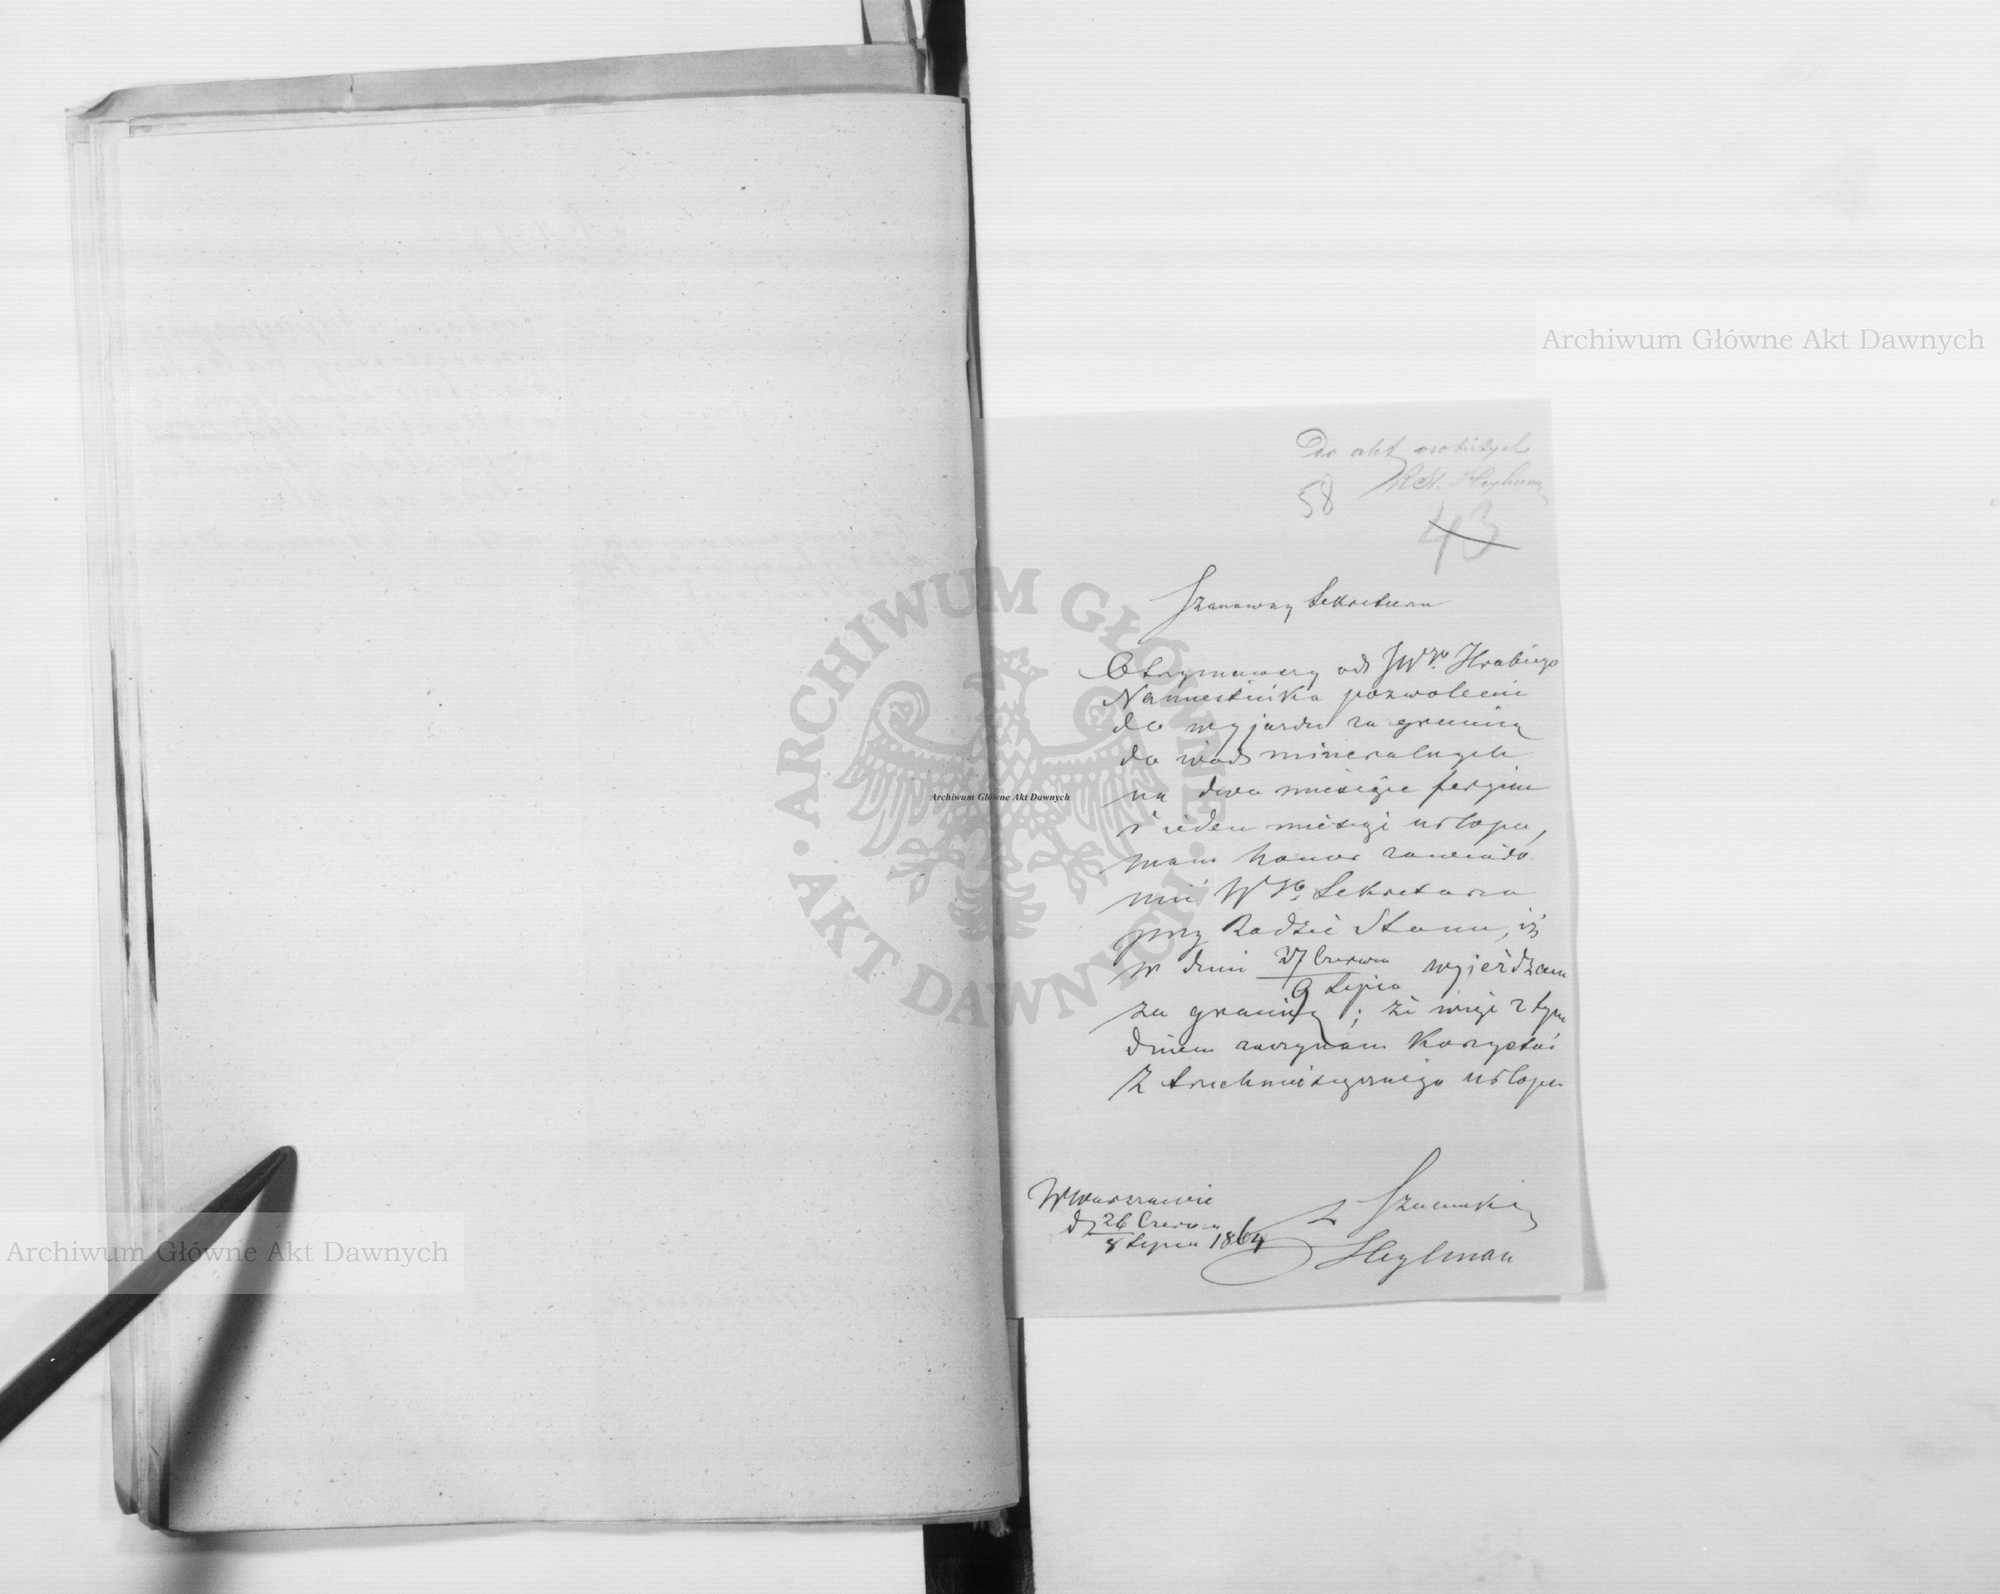 Do akt osobistych
R.St. Heylman
58
43
Szanowny Sekretarzu
Otrzymawszy od JWgo Hrabiego
Namiestnika pozwolenie
do wyjazdu za granicę
do wód mineralnych
na dwa miesiące feryine
i ieden miesiąc urlopu,
mam honor zawiado-
mić Wgo Sekretarza
przy Radzie Stanu, iż
w dniu 27 Czerwca / 9 Lipca wyjeżdżam
za granicę; że więc z tym
dniem zaczynam korzystać
z trzechmiesięcznego urlopu
W Warszawie
d. 26 Czerwca / 8 Lipca 1864
z Szacunkiem
Heylman
Archiwum Główne Akt Dawnych
Archiwum Główne Akt Dawnych
Archiwum Główne Akt Dawnych
ARCHIWUM GŁÓWNE · AKT DAWNYCH ·